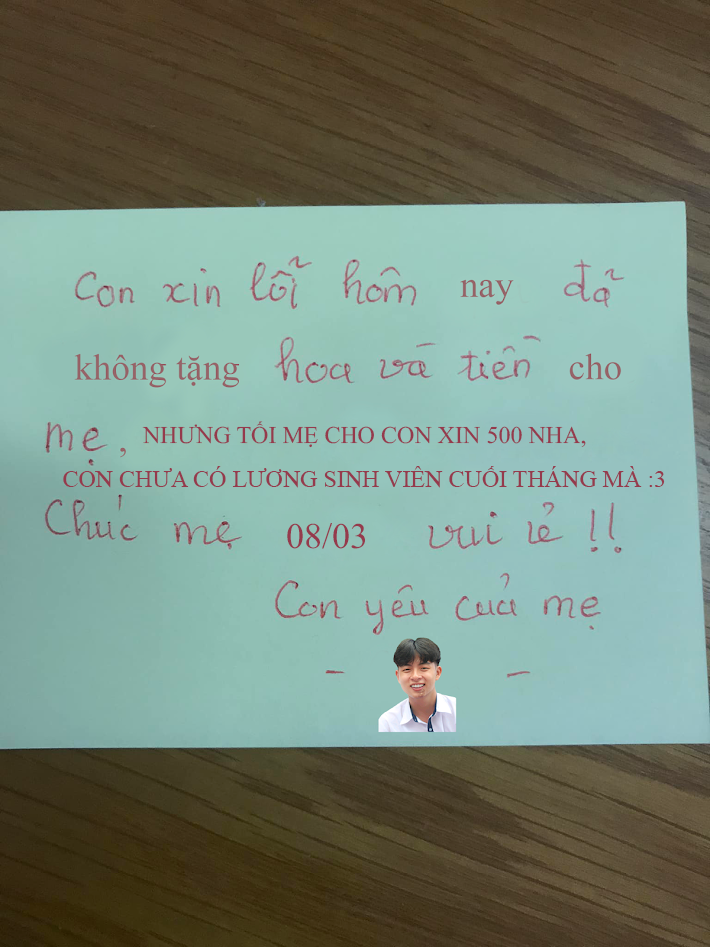 Con xin lỗi hôm nay đã
không tặng hoa và tiền cho
mẹ, NHƯNG TỐI MẸ CHO CON XIN 500 NHA,
CON CHƯA CÓ LƯƠNG SINH VIÊN CUỐI THÁNG MÀ :3
Chúc mẹ 08/03 vui vẻ !!
Con yêu của mẹ
- -